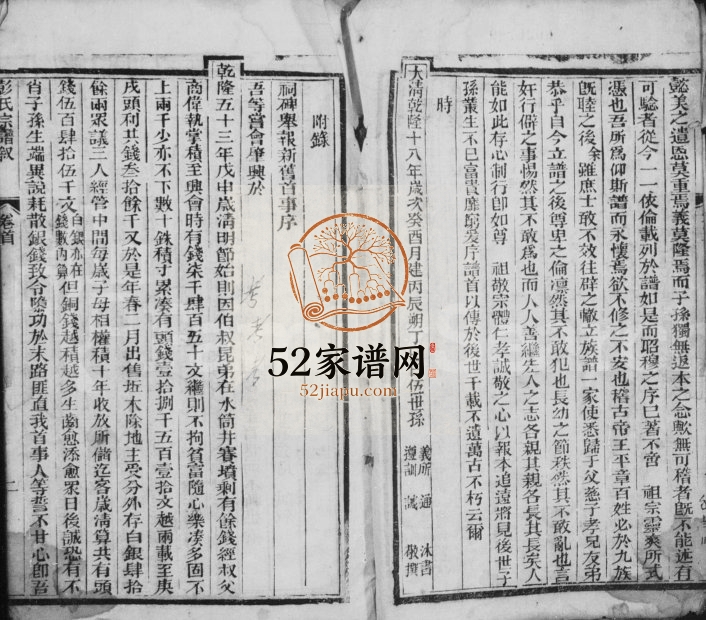 懿美之遺恩莫重焉義莫隆焉而子孫獨無返本之念歟無可稽者既不能述有
可驗者從今一一依倫載列於譜如是而昭穆之序已著不啻 祖宗靈爽所式
憑也吾所為仰斯譜而永懷焉欲不修之不安也稽古帝王平章百姓必於九族
既睦之後余雖庶士敢不效往辟之轍立族譜一家使悉歸于父慈子孝兄友弟
恭乎自今立譜之後尊卑之倫凜然其不敢犯也長幼之節秩然其不敢亂也言
奸行僻之事惕然其不敢為也而人人善繼先人之志各親其親各長其長矣人
能如此存心制行即如尊 祖敬宗體仁孝誠敬之心以報本追遠將見後世子
孫叢生不已富貴靡窮爰序譜首以傳於後世千載不遺萬古不朽云爾
時
大清乾隆十八年歲次癸酉月建丙辰朔丁 伍世孫
義所 通 沐書
遵訓 誠 敬撰
附錄
祠碑舉報新舊首事序
吾等嘗會肇興於
乾隆五十三年戊申歲清明節始則因伯叔昆弟在水筒井賽墳剩有餘錢經叔父
商偉執掌積至興會時有錢柒千肆百五十文繼則不拘貧富隨心樂湊多固不
上兩千少亦不下數十銖積寸累湊有頭錢壹拾捌千五百壹拾文越兩載至庚
戌頭利其錢叁拾餘千又於是年春二月出售坵木除地主受分外存白銀肆拾
餘兩眾議三人經管中間每歲子母相權積十年收放所償迄客歲清算共有頭
錢伍百肆拾伍千文白銀亦在錢數內算但銅錢越積越多生齒愈添愈眾日後誠恐有不
肖子孫生端異說耗散銀錢致令隳功於末路匪直我首事人等誓不甘心即吾
彭氏宗譜敘
卷首
一
52家谱网
52jiapu.com